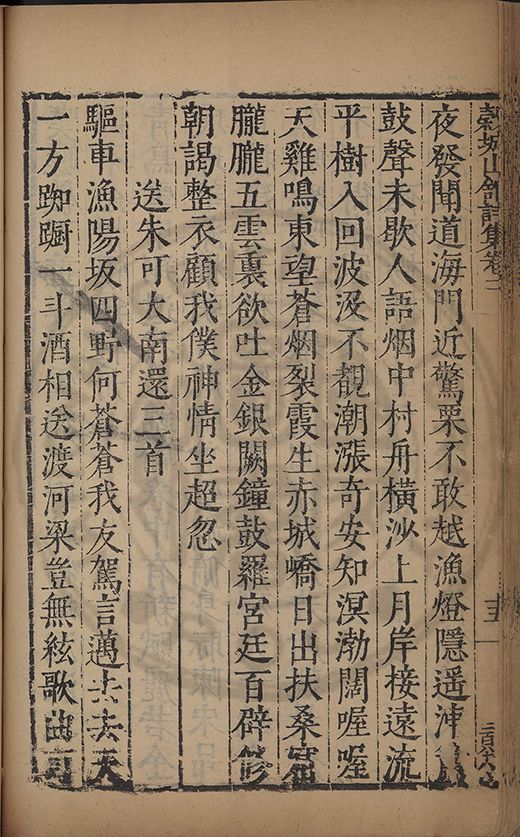 穀城山館詩集卷二
夜發聞道海門近驚栗不敢越漁燈隱遥沖
鼓聲未歇人語烟中村舟橫沙上月岸接遠流
平樹入回波沒不覩潮漲奇安知溟渤闊喔喔
天雞鳴東望蒼烟裂霞生赤城嶠日出扶桑窟
朧朧五雲裏欲吐金銀闕鐘鼓羅宮廷百辟修
朝謁整衣顧我僕神情坐超忽
送朱可大南還三首
驅車漁陽坂四野何蒼蒼我友駕言邁去去天
一方踟蹰一斗酒相送渡河梁豈無絃歌曲